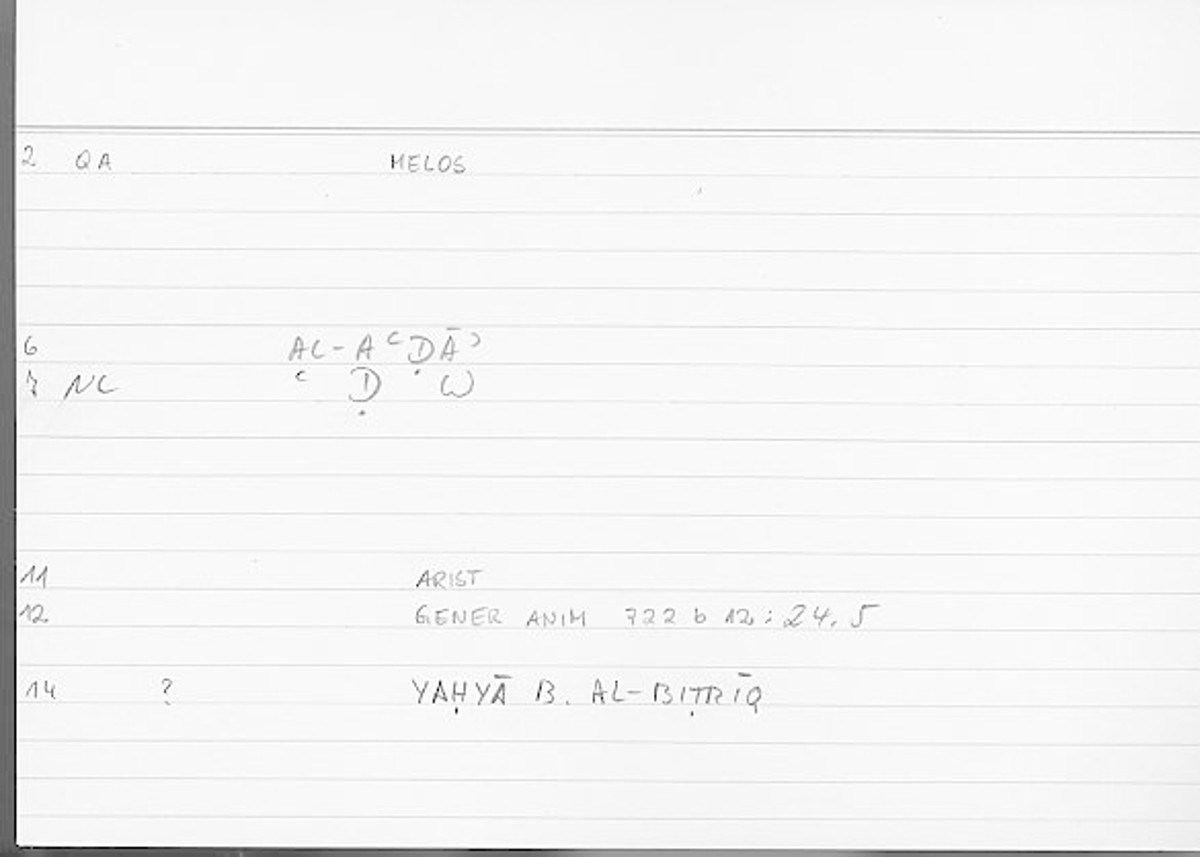 2 QA MELOS
6 AL-AʿḌĀʾ
7 NC ʿ Ḍ W
11 ARIST
12 GENER ANIM 722 b 12 : 24.5
14 ? YAḤYĀ B. AL-BIṬRĪQ